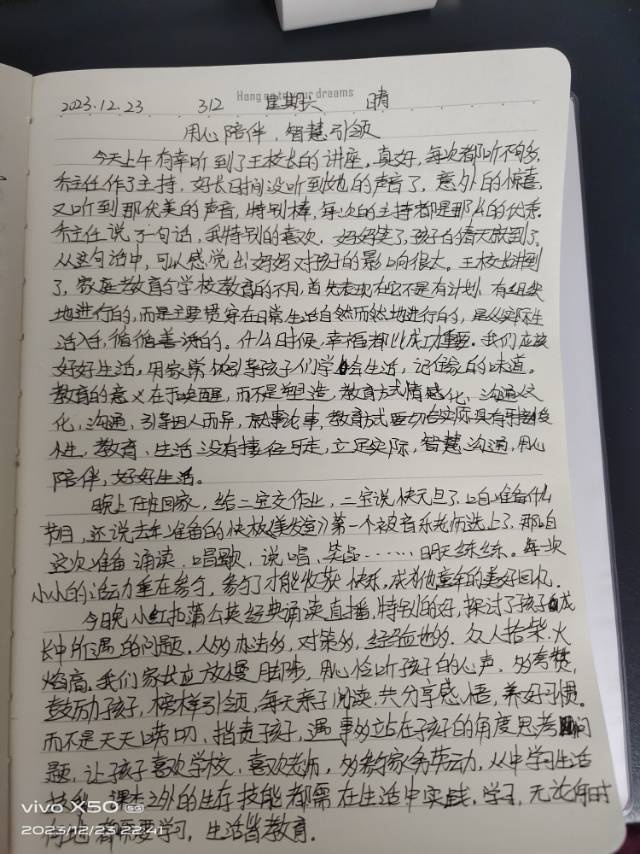 Hang on to your dreams
2023.12.23 312 星期六 晴
用心陪伴,智慧引领
今天上午有幸听到了王校长的讲座,真好,每次都听不够,
乔主任作了主持,好长时间没听到她的声音了,意外的惊喜,
又听到那优美的声音,特别棒,每次的主持都是那么的优秀。
乔主任说了一句话,我特别的喜欢,妈妈笑了,孩子的晴天就到了。
从这句话中,可以感觉出妈妈对孩子的影响很大。王校长讲到
了,家庭教育与学校教育的不同,首先表现在它不是有计划、有组织
地进行的,而是主要贯穿在日常生活自然而然地进行的,是从实际生
活入手,循循善诱的。什么时候,幸福都比成功重要。我们应该
好好生活,用家常 引导孩子们学会生活,记住家的味道。
教育的意义在于唤醒,而不是塑造,教育方式情感化,沟通文
化,沟通,引导因人而异,就事论事,教育方式要切合实际具有可接受
性,教育、生活没有捷径可走,立足实际,智慧沟通,用心
陪伴,好好生活。
晚上 回家,给二宝交作业,二宝说快元旦了,咱准备什么
节目,还说去年准备的快板《 》第一个被音乐老师选上了,那咱
这次准备诵读,唱歌,说唱, ……明天练练。每一次
小小的活动重在参与,参与了才能收获快乐,成就他童年的美好回忆。
今晚小红扣蒲公英经典诵读直播,特别的好,探讨了孩子成
长中所遇的问题。人多办法多,对策多,经验也多。众人拾柴火
焰高。我们家长应放慢脚步,用心聆听孩子的心声。多夸赞,
鼓励孩子,榜样引领,每天亲子阅读,共分享感悟,养好习惯。
而不是天天唠叨,指责孩子,遇事多站在孩子的角度思考问
题,让孩子喜欢学校,喜欢老师,多参与家务劳动,从中学习生活
技能,课本之外的生存技能都需在生活中实践,学习,无论何时
何地都需要学习,生活皆教育。
vivo X50 5G
2023/12/23 22:41